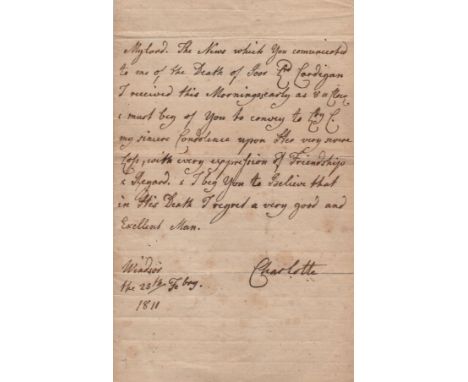 Mylord. The News which You comunicated
to me of the Death of Poor Ld Cardigan
I received this Morning early as 8 o Clock
I must beg of You to convey to Ldy C.
my sincere Condolence upon Her very severe
Loss, with every expression of Friendship
& Regard. & I beg You to Believe that
in His Death I regret a very good and
Exellent Man.
Windsor
the 23th Febry.
1811
Charlotte